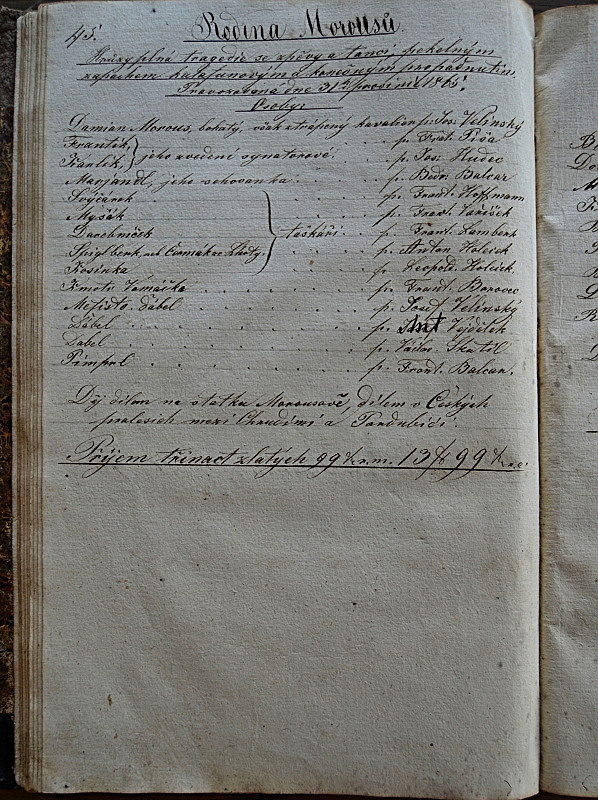 45.
Rodina Morousů.
Hrůzyplná tragedie se zpěvy a tanci, pekelným
zápachem kalafunovým a konečným propadnutím.
Provozována dne 31ho prosince 1865.
Osoby:
Damian Morous, bohatý, však ztrápený kavalier p. Jos. Velinský
František, p. Frat. Píša
Karlík, jeho zvedení synátorové. p. Jos. Hudec
Marjandl, jeho schovanka p. Bedř. Balcar
Švýcárek p. Frant. Hoffmann
Myšák p. Frant. Vařiček
Darebníček taškáři p. Frant. Lambert
Spigl Berk, neb Čermák ze Lhoty. p. Anton Holeček
Kosinka p. Leopold. Holeček.
Kmotr Vomáčka p. Frant. Borovec
Mefisto. ďábel p. Josef Velinský
Ďábel p. Ant Vejdělek
Ďábel p. Václav. Skutil
Pimprl p. Frant. Balcar.
Děj dílem na statku Morousově, dílem v Českých
pralesích mezi Chrudimí a Pardubicí.
Příjem třináct zlatých 99 kr. r.m. 13 fl 99 kr. r.č.